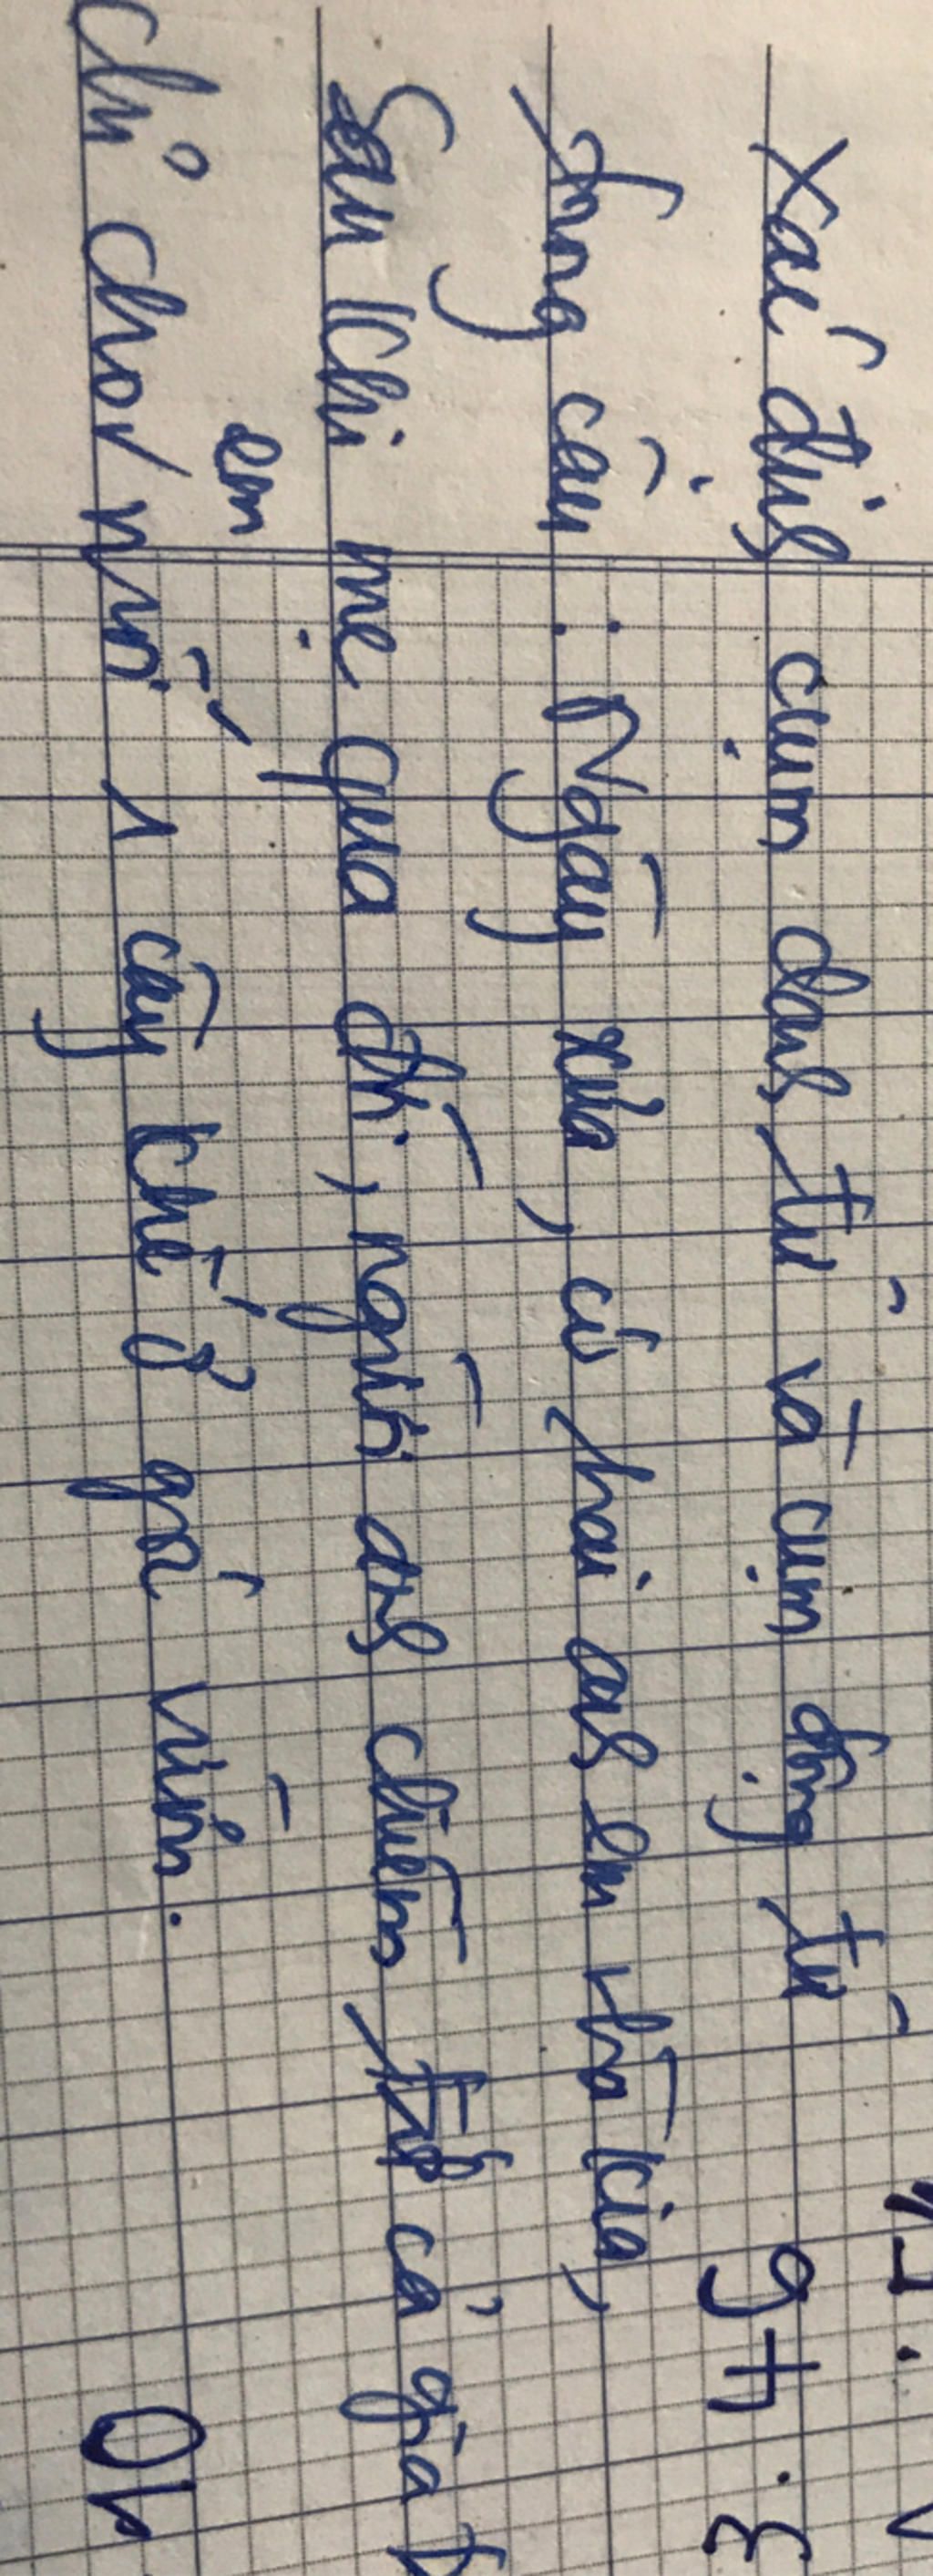 Xác định cụm danh từ và cụm động từ
trong câu: Ngày xưa, có hai anh em nhà kia,
Sau khi mẹ qua đời, người anh chiếm hết cả gia
em
chỉ cho người 1 cây khế ở góc vườn.